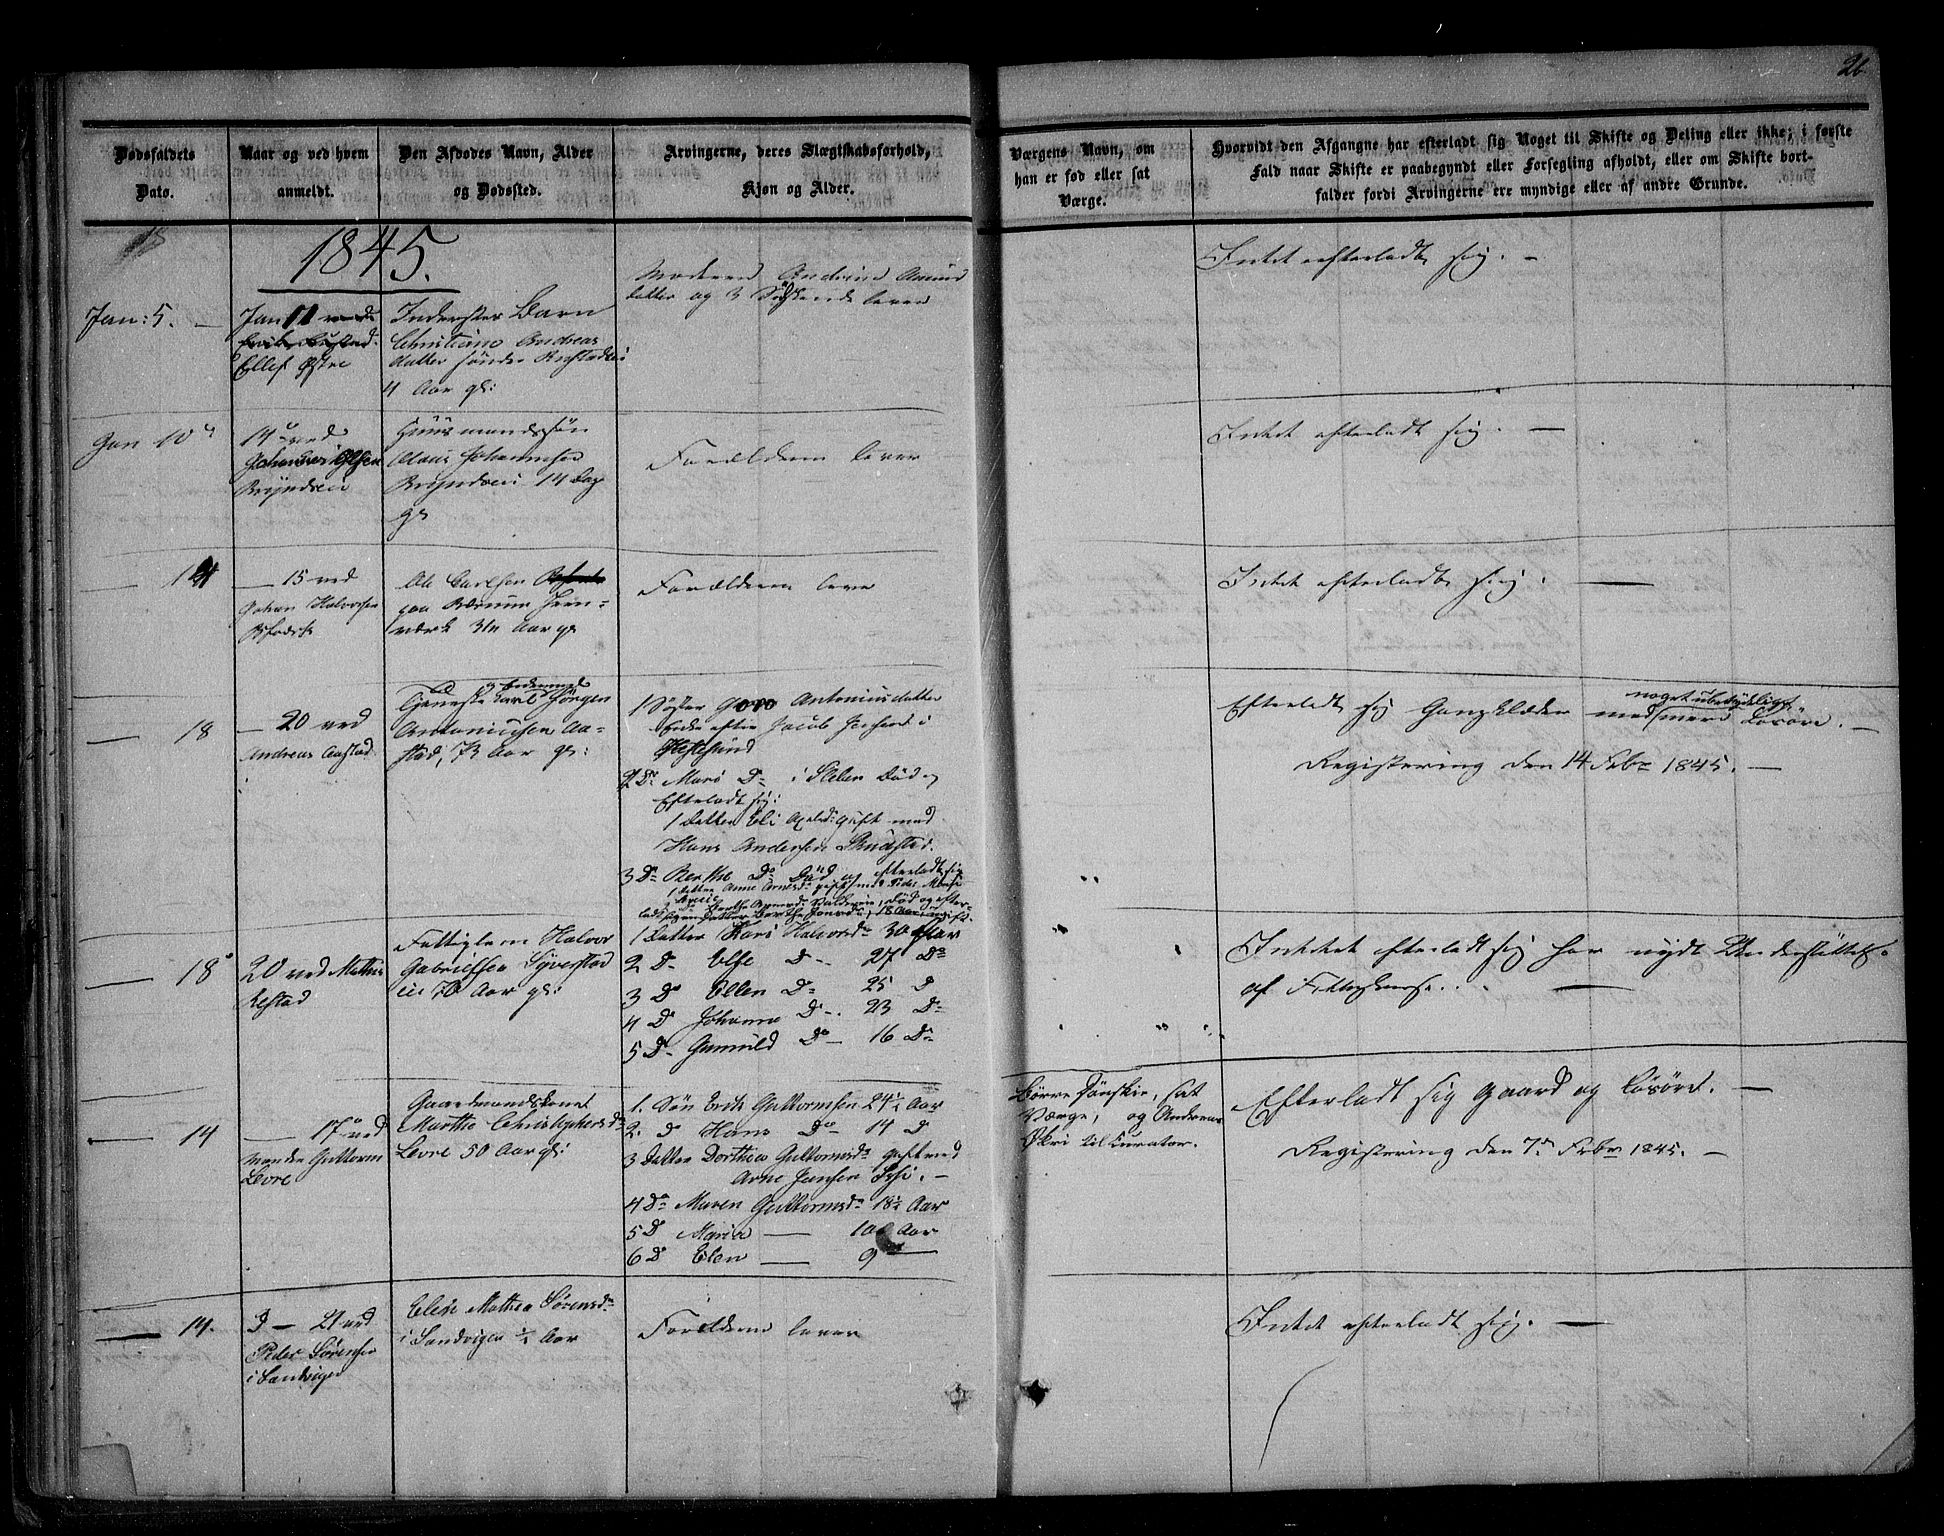 26
Dødsfaldets
Dato.
Naar og ved hvem
anmeldt.
Den Afdødes Navn, Alder
og Dødssted.
Arvingerne, deres Slægtskabsforhold,
Kjøn og Alder.
Værgens Navn, om
han er fød eller sat
Værge.
Hvorvidt den Afgangne har efterladt sig Noget til Skifte og Deling eller ikke; i første
Fald naar Skifte er paabegyndt eller Forsegling afholdt, eller om Skifte bort-
falder fordi Arvingerne ere myndige eller af andre Grunde.
1845.
Jan: 5. —
Jan 11 ved
Ellef Østre
Inderster Barn
Christiane Andreas
datter søndre
4 Aar gl:
Moderen Andrine Amund
datter og 3 Søskende lever
Intet efterladt sig. —
Jan 10
14 ved
Johannes Olsen
Bryndsei
Huusmandssøn
Olaus Johannsen
Bryndsei 14 Dag
gl
Forældrene lever
Intet efterladt sig. —
— 15 ved
Johan Halvorsen
Ole Carlsen
paa Bærums Jern-
værk 3 1/2 Aar gl
Forældrene leve
Intet efterladt sig. —
— 18
— 20 ved
Andreas Aastad
Tjeneste Carl Jørgen
Antoniusen Aa-
stad, 73 Aar gl:
1 Søster Antoniusdatter
Enke efter Jacob i
2 Do Mari Do i Død og
Efterladt sig:
1 datter Eli gift med
Hans Andersen
3 Do Berthe Do Død og efterladt sig
1 datter Anne Arnesd gift med Peder
Berthe Død og efter-
ladt sig en datter Berthe Jonsd, 18 Aar, ugift.
Efterladt sig Gangklæder med mere Løsøre. —
noget ubetydeligt
Registering den 14 Febr 1845. —
— 18
20 ved Mathis
Restad
Fattiglem Halvor
Gabrielsen Syverstad
70 Aar gl:
1 Datter Kari Halvorsd 30 Aar
2 D— Else D— 27 Do
3 Do Ellen D— 25 D
4 D Johanne D— 23 D—
5 D— Gunnild Do 16 D—
Intet efterladt sig har nydt Understøttelse
af
— 14
— 17 ved
Manden Guttorm
Levre
Gaardmandskone
Marthe Christophersd
Levre 50 Aar gl:
1. Søn Erik Guttormsen 24 1/2 Aar
2. D Hans Do 14 D
3 Datter Dorthea Guttormsd gift med
Arne Jansen
4 Do Maren Guttormsd 18 1/2 Aar
5 D Maria — 10 Aar
6 D Elen — 9 —
Børre Tønskie, sat
Værge, og Andreas
Økri til Curator.
Efterladt sig Gaard og Løsøre. —
Registering den 7 Febr 1845. —
— 14.
D — 21 ved
Peder Sørensen
i Sandvigen
Elise Mathea Sørensd
i Sandvigen 1/2 Aar
Forældrene lever
Intet efterladt sig. —